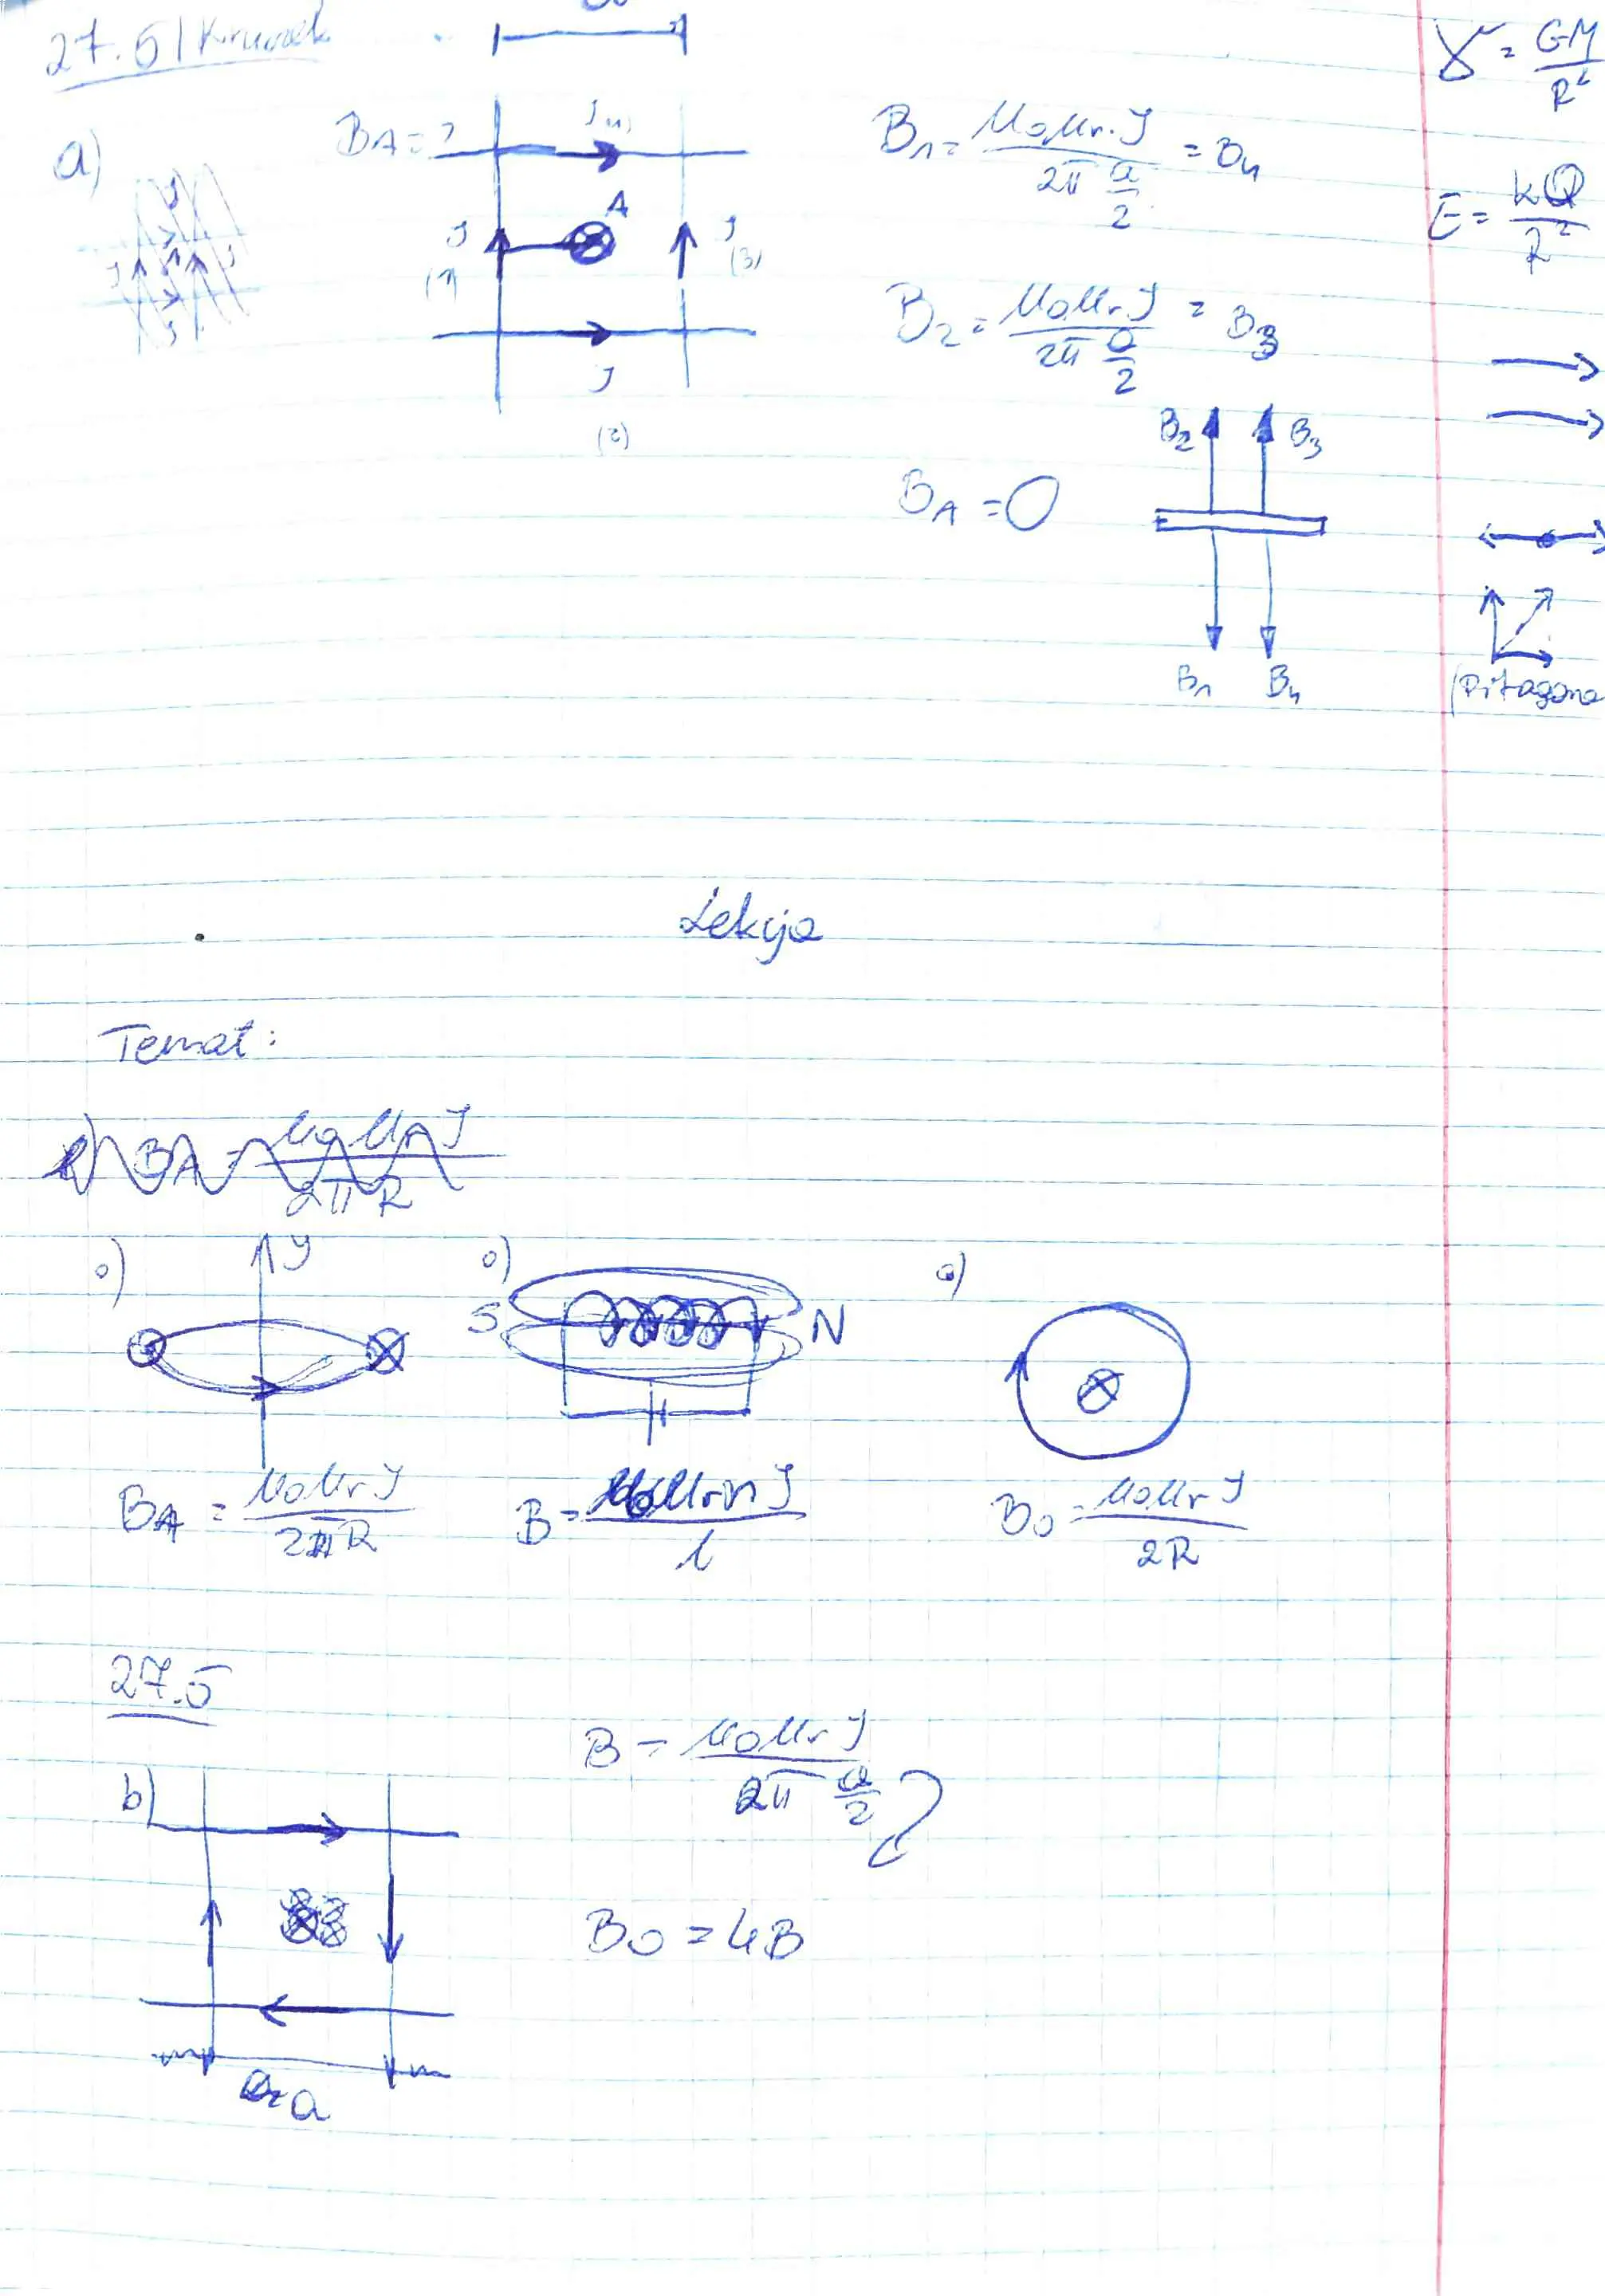 27.5 | Kruczek
a)
B_A = ?
J (4)
A
J (1)
J (3)
J
(2)
B₁ = μ₀μr·J / 2π a/2 = B₄
B₂ = μ₀μr J / 2π a/2 = B₃
B₂ B₃
B_A = 0
B₁ B₄
γ = GM / R²
E = kQ / R²
(Pitagora
Lekcja
Temat:
B_A = μ₀μr J / 2πR
o) y
o) S N
o)
B_A = μ₀μr J / 2πR
B = μ₀μr n J / l
B₀ = μ₀μr J / 2R
27.5
b)
B = μ₀μr J / 2π a/2
B₀ = 4B
a